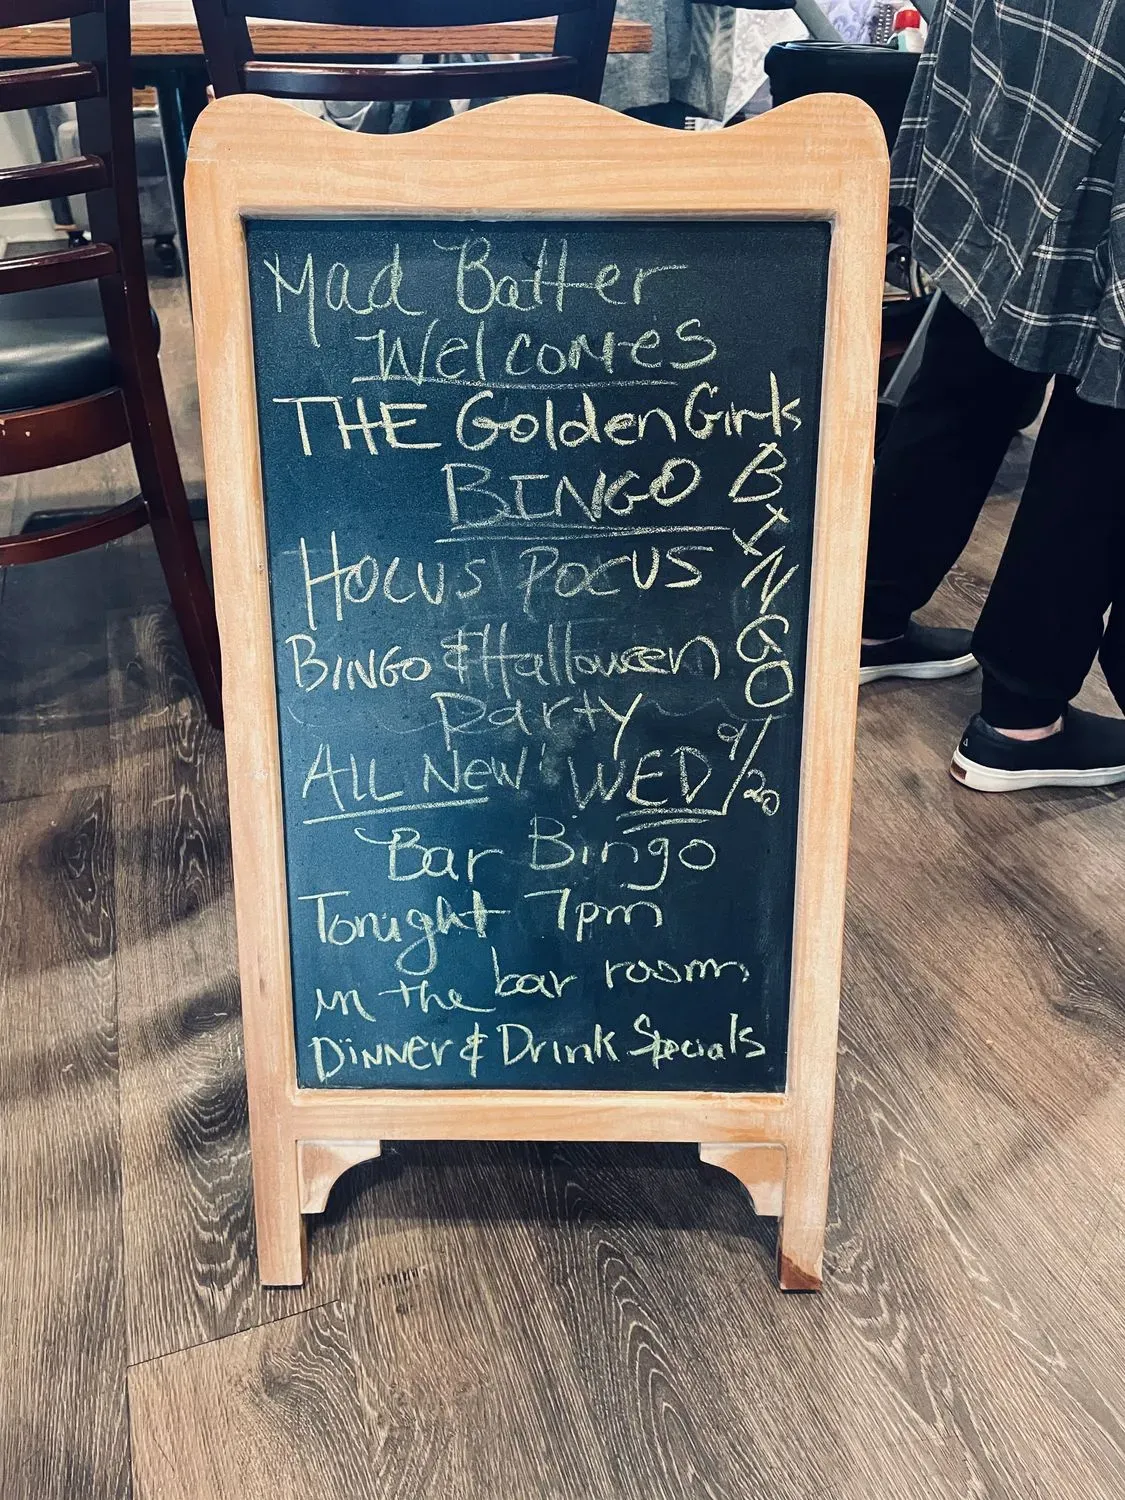 Mad Batter
Welcomes
THE Golden Girls
BINGO
BINGO
HOCUS POCUS
BINGO & Halloween
Party
ALL NEW WED 9/20
Bar Bingo
Tonight 7pm
in the bar room
DINNER & Drink Specials